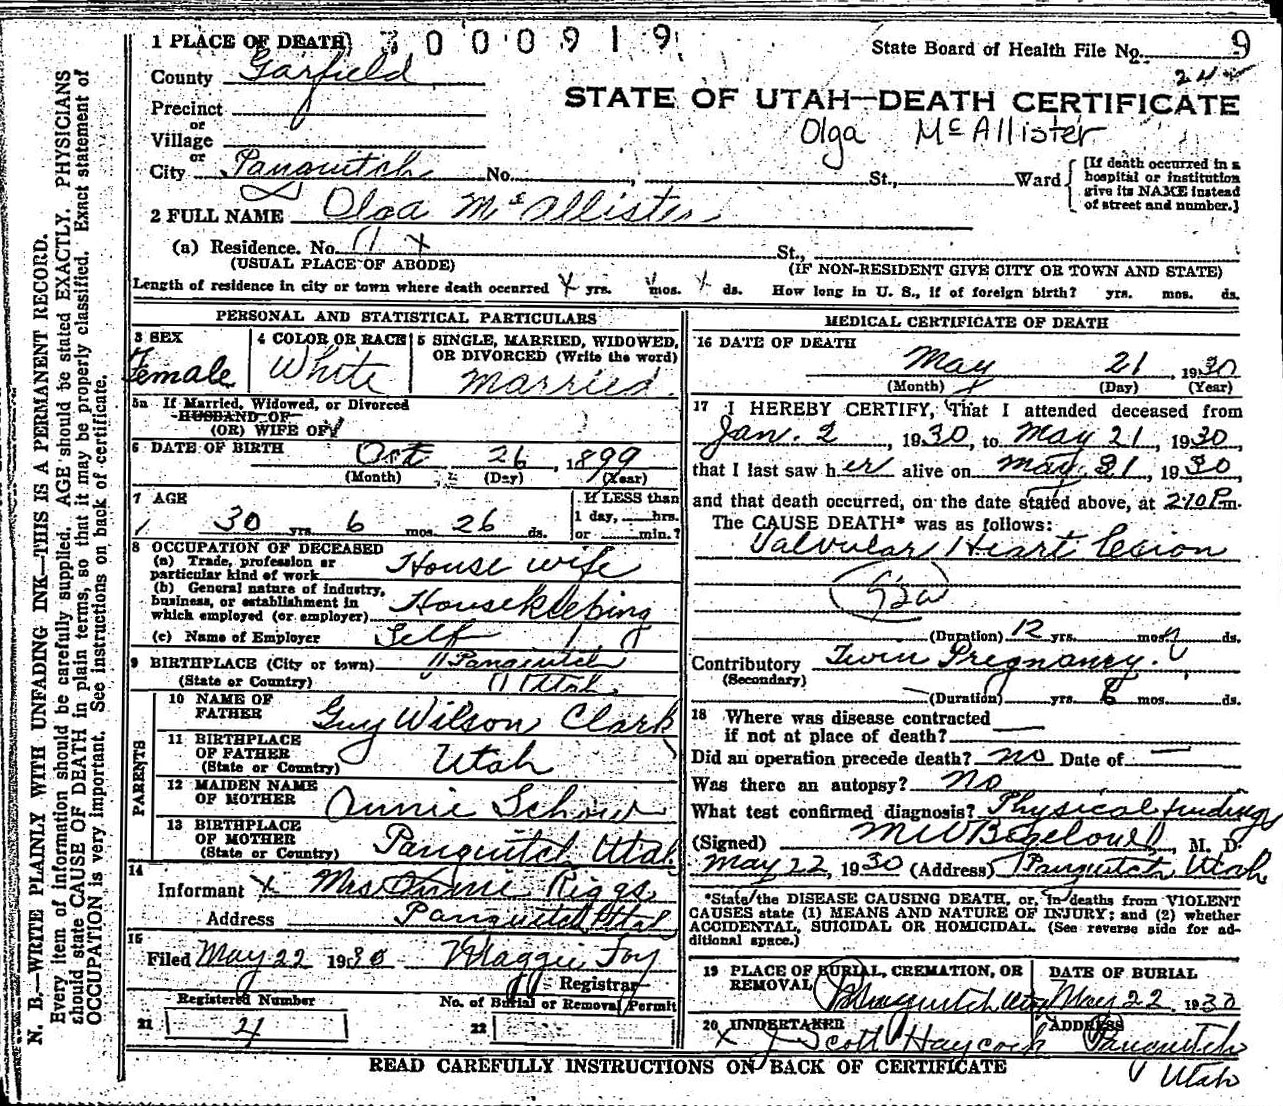 1 PLACE OF DEATH 3000919
State Board of Health File No. 9
County Garfield
STATE OF UTAH—DEATH CERTIFICATE
Precinct
or
Olga McAllister
Village
or
City Panguitch No. , St., Ward
[If death occurred in a
hospital or institution
give its NAME instead
of street and number.]
2 FULL NAME Olga McAllister
(a) Residence. No. St.,
(USUAL PLACE OF ABODE) (IF NON-RESIDENT GIVE CITY OR TOWN AND STATE)
Length of residence in city or town where death occurred x yrs. x mos. x ds. How long in U. S., if of foreign birth? yrs. mos. ds.
PERSONAL AND STATISTICAL PARTICULARS
3 SEX
Female
4 COLOR OR RACE
White
5 SINGLE, MARRIED, WIDOWED,
OR DIVORCED (Write the word)
Married
5a If Married, Widowed, or Divorced
HUSBAND OF
(OR) WIFE OF
6 DATE OF BIRTH Oct 26, 1899
(Month) (Day) (Year)
7 AGE
30 yrs. 6 mos. 26 ds.
If LESS than
1 day, hrs.
or min.?
8 OCCUPATION OF DECEASED
(a) Trade, profession or
particular kind of work House wife
(b) General nature of industry,
business, or establishment in
which employed (or employer) Housekeeping
(c) Name of Employer Self
9 BIRTHPLACE (City or town) Panguitch
(State or Country) Utah
PARENTS
10 NAME OF
FATHER Guy Wilson Clark
11 BIRTHPLACE
OF FATHER
(State or Country) Utah
12 MAIDEN NAME
OF MOTHER Annie
13 BIRTHPLACE
OF MOTHER
(State or Country) Panguitch Utah
14
Informant x Mrs Annie Riggs
Address Panguitch Utah
15
Filed May 22 1930 Maggie Foy
Registrar
Registered Number No. of Burial or Removal Permit
21 4 22
MEDICAL CERTIFICATE OF DEATH
16 DATE OF DEATH
May 21, 1930
(Month) (Day) (Year)
17 I HEREBY CERTIFY, That I attended deceased from
Jan. 2, 1930, to May 21, 1930,
that I last saw her alive on May 21, 1930,
and that death occurred, on the date stated above, at 2:10 Pm.
The CAUSE DEATH* was as follows:
Valvular Heart Lesion
(Duration) 12 yrs. mos. ds.
Contributory Twin Pregnancy.
(Secondary)
(Duration) yrs. 8 mos. ds.
18 Where was disease contracted
if not at place of death? —
Did an operation precede death? no Date of —
Was there an autopsy? no
What test confirmed diagnosis? Physical findings
(Signed) M W Bigelow, M. D.
May 22, 1930 (Address) Panguitch Utah
*State the DISEASE CAUSING DEATH, or, in deaths from VIOLENT
CAUSES state (1) MEANS AND NATURE OF INJURY; and (2) whether
ACCIDENTAL, SUICIDAL OR HOMICIDAL. (See reverse side for ad-
ditional space.)
19 PLACE OF BURIAL, CREMATION, OR
REMOVAL Panguitch Utah
DATE OF BURIAL
May 22 1930
20 UNDERTAKER
x J Scott Haycock
ADDRESS
Panguitch
Utah
READ CAREFULLY INSTRUCTIONS ON BACK OF CERTIFICATE
N. B.—WRITE PLAINLY WITH UNFADING INK—THIS IS A PERMANENT RECORD.
Every item of information should be carefully supplied. AGE should be stated EXACTLY. PHYSICIANS
should state CAUSE OF DEATH in plain terms, so that it may be properly classified. Exact statement of
OCCUPATION is very important. See instructions on back of certificate.